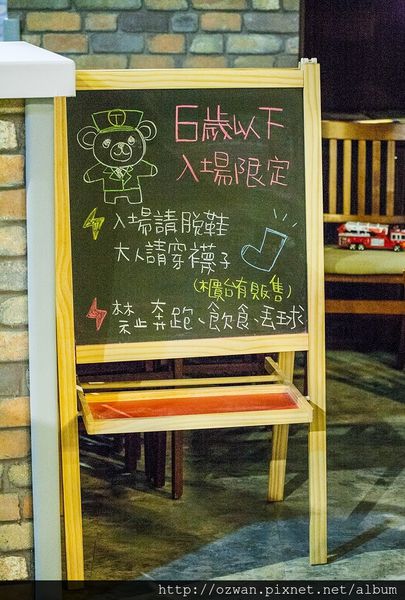 T
6歲以下
入場限定
入場請脫鞋
大人請穿襪子
(櫃台有販售)
禁止奔跑、飲食、丟球
http://ozwan.pixnet.net/album